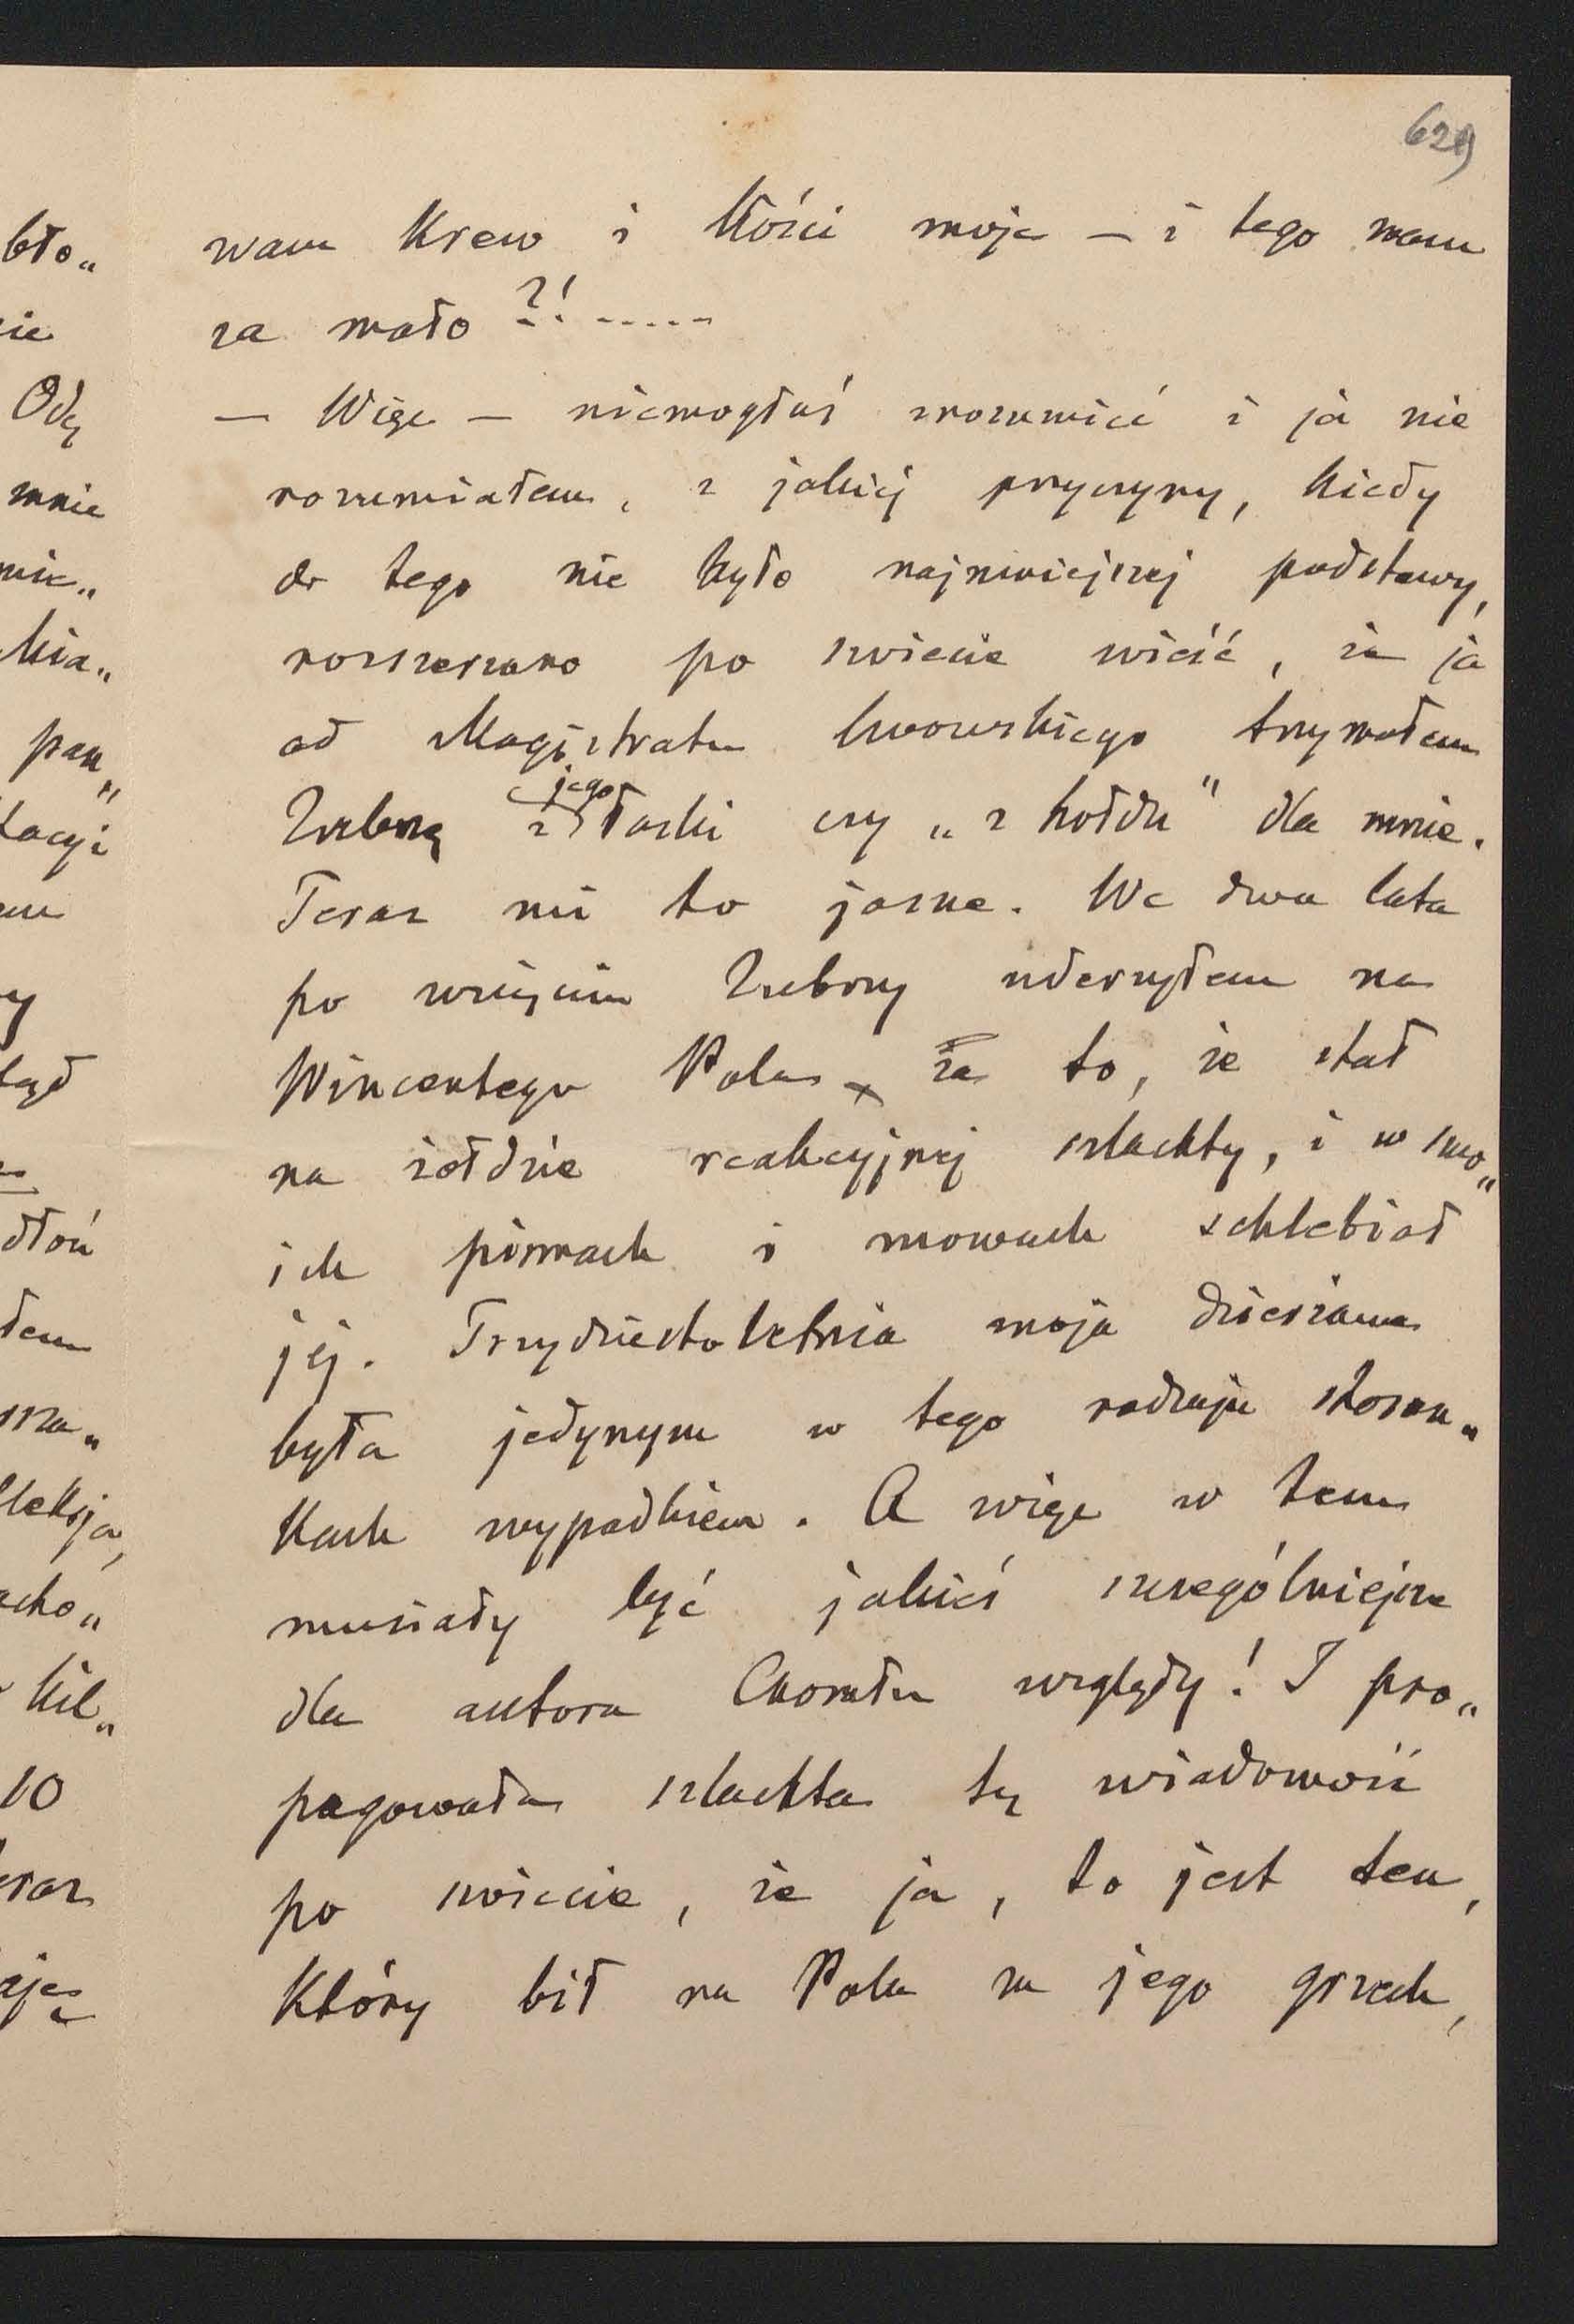 629
wam Krew i Kości moje — i tego wam
za mało ?! -----
— Więc — niemogłaś zrozumieć i ja nie
rozumiałem, z jakiej przyczyny, kiedy
do tego nie było najmniejszej podstawy,
rozszerzano po świecie wieść, że ja
od Magistratu lwowskiego trzymałem
Zubrzę z jego łaski czy „z hołdu" dla mnie.
Teraz mi to jasne. We dwa lata
po wzięciu Zubrzy uderzyłem na
Wincentego Pola za to, że stał
na żołdzie reakcyjnej szlachty, i w swo„
ich pismach i mowach schlebiał
jej. Trzydziestoletnia moja dzierżawa
była jedynym w tego rodzaju stosun„
kach wypadkiem. A więc w tem
musiały być jakieś szczególniejsze
dla autora Chorału względy! I pro„
pagowała szlachta tę wiadomość
po świecie, że ja, to jest ten,
Który bił na Pola za jego grzech,
bło„
Odę
mnie
kia„
pan„
dłoń
kil„
10